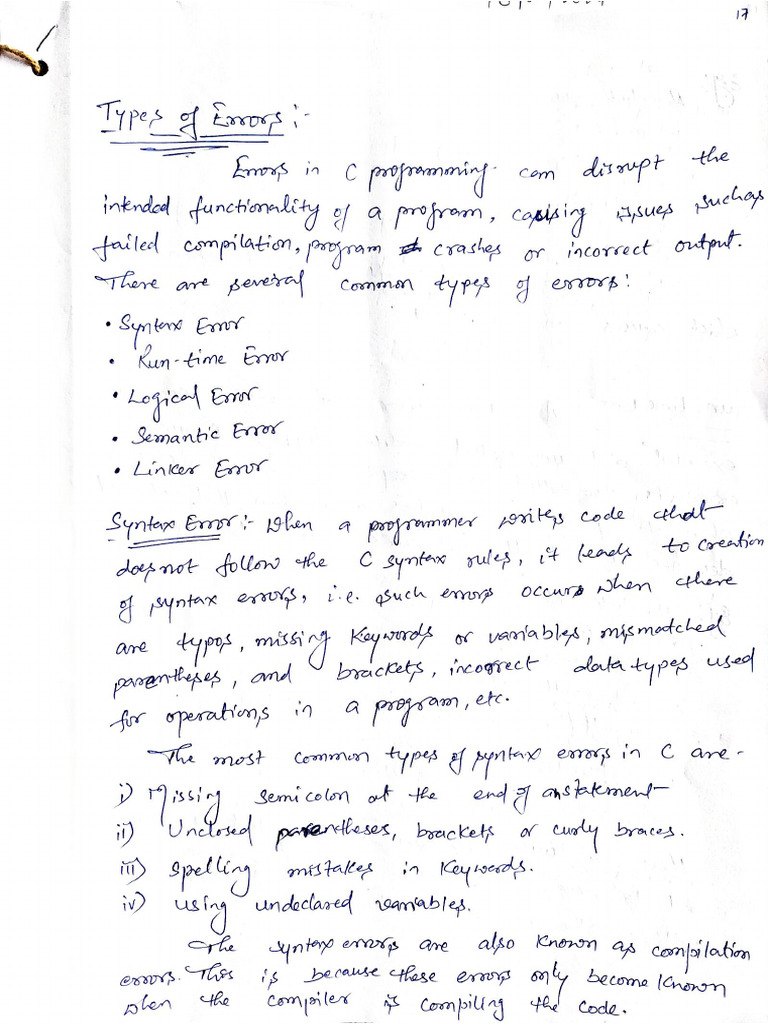 17
Types of Errors :-
Errors in C programming can disrupt the
intended functionality of a program, causing issues such as
failed compilation, program crashes or incorrect output.
There are several common types of errors:
• Syntax Error
• Run-time Error
• Logical Error
• Semantic Error
• Linker Error
Syntax Error:- When a programmer writes code that
does not follow the C syntax rules, it leads to creation
of syntax errors, i.e. such errors occurs when there
are typos, missing Keywords or variables, mismatched
parentheses, and brackets, incorrect data types used
for operations in a program, etc.
The most common types of syntax errors in C are-
i) Missing semicolon at the end of a statement
ii) Unclosed parentheses, brackets or curly braces.
iii) Spelling mistakes in Keywords.
iv) using undeclared variables.
The syntax errors are also known as compilation
errors. This is because these errors only become known
when the compiler is compiling the code.